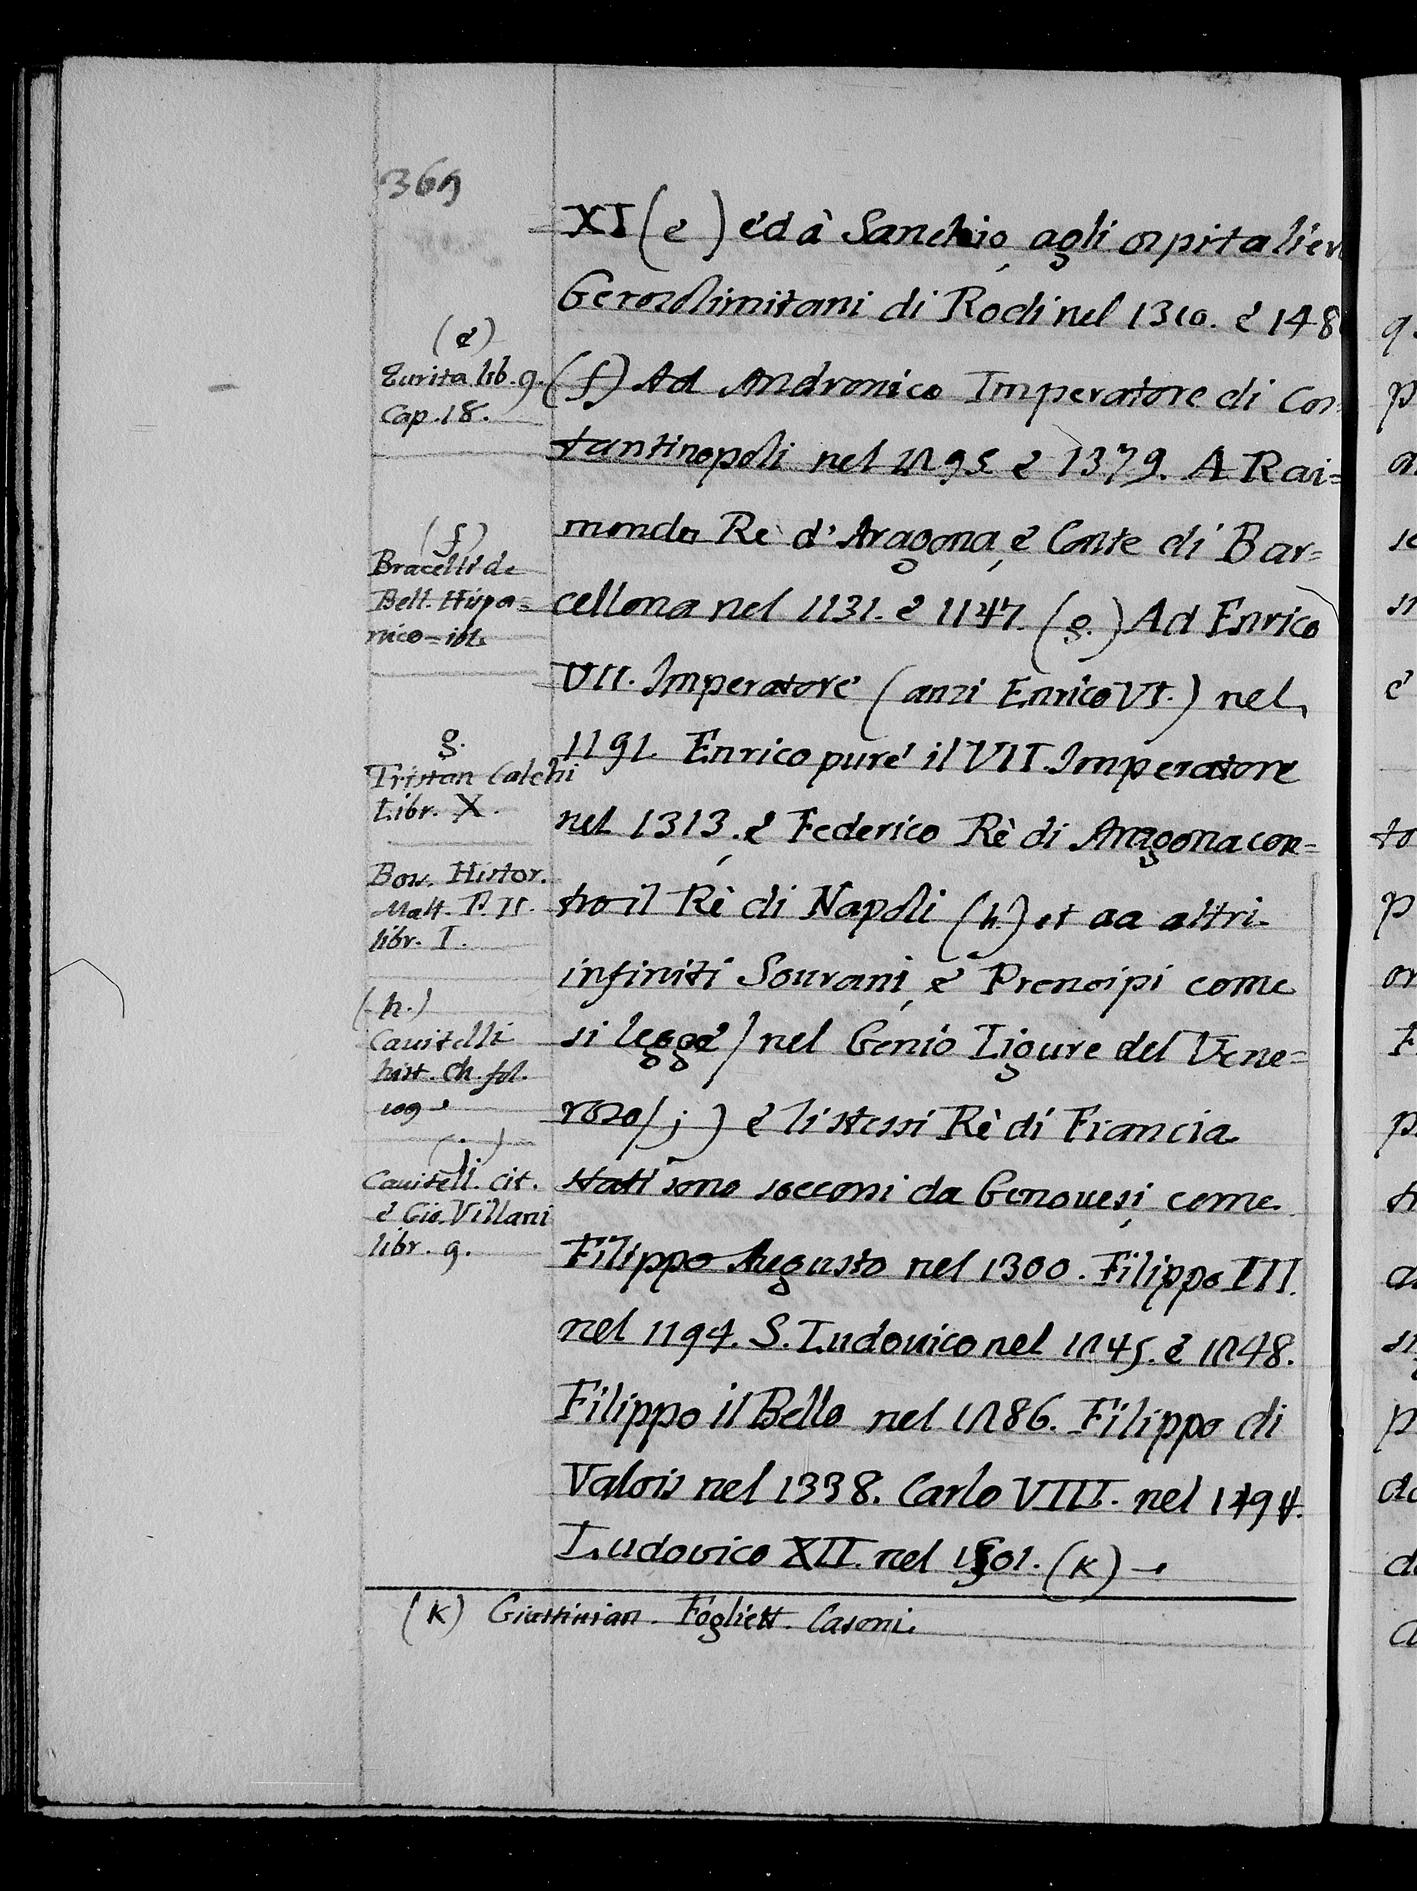 369
XI (e) éd à Sanchio, agli ospitalier
Gerosolimitani di Rodi nel 1310. è 148
(e)
Zurita lib. 9.
Cap. 18.
(f) Ad Andronico Imperatore di Cos
tantinopoli nel 1295 è 1379. A Rai=
mondo Re d'Aragona, è Conte di Bar=
(f)
Bracelli de
Bell. Hispa=
nico - ibi.
cellona nel 1131. è 1147. (g.) Ad Enrico
VII. Imperatore (anzi Enrico VI.) nel
1191. Enrico puré il VII Imperatore
g.
Tristan Calchi
Libr. X.
nel 1313, è Federico Rè di Aragona con=
Bos. Histor.
Malt. P. II.
libr. I.
tro il Rè di Napoli (h.) et aa altri
infiniti Sourani, è Prencipi come
(h.)
Cauitelli
hist. Ch. fol.
109
si leggé) nel Genio Ligure del Vene=
roso (j) è li stessi Rè di Francia
(j)
Cauitell. cit.
è Gio. Villani
libr. 9.
stati sono soccorsi da Genouesi, come
Filippo Augusto nel 1300. Filippo III.
nel 1194. S. Ludouico nel 1245. è 1248.
Filippo il Bello nel 1286. Filippo di
Valois nel 1338. Carlo VIII. nel 1494.
Ludouico XII. nel 1501. (K)
(K) Giustinian. Fogliett. Casoni.